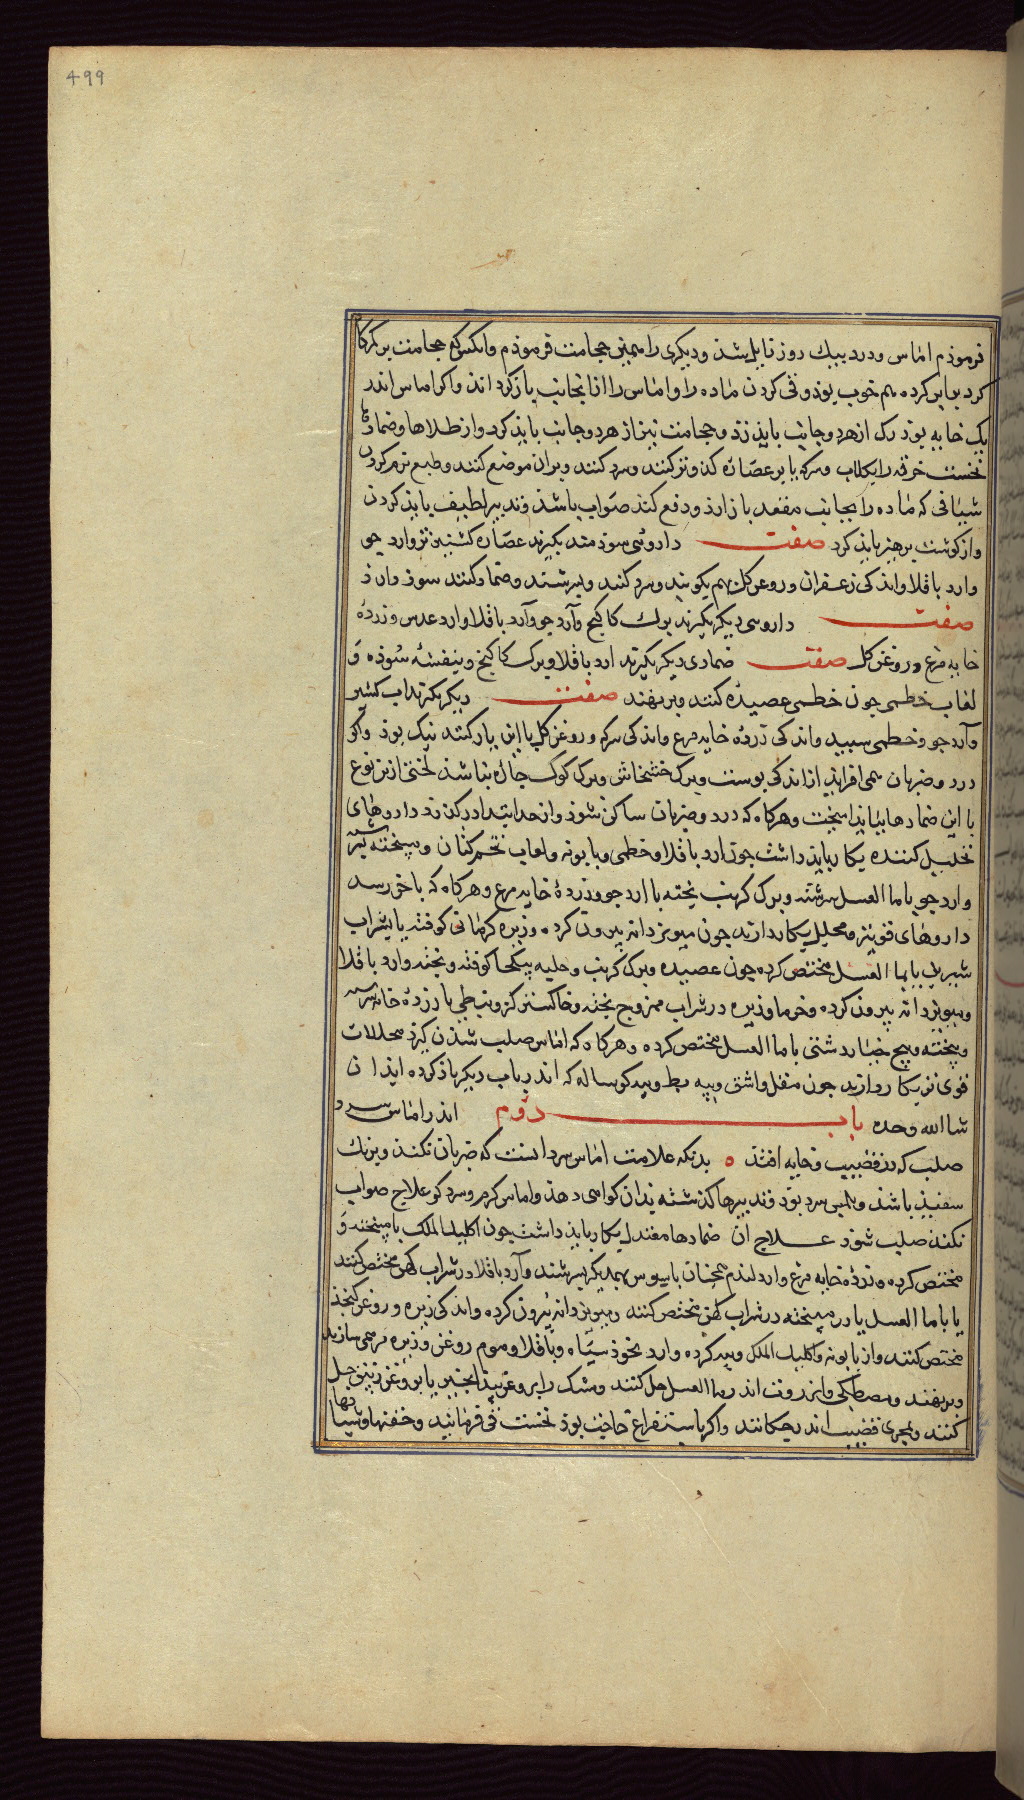 499
فرموذم اماس و درد بیک روز زایل شذ و دیکری را همین حجامت فرموذم و انکس کی حجامت بر کمرکاه
کرد بیاس کرده هم خوب بوذ و قی کردن ماده را و اماس را از انجانب باز کرداند و اکر اماس اندر
یک خایه بوذ رک از هر دو جانب بایذ زد و حجامت نیز از هر دو جانب بایذ کرد و از طلاها و ضمادها
نخست خرقه را بکلاب و سرکه یا بر عصاره کدو تر کنند و سرد کنند و بران موضع کنند و طبع نرم کردن
شیافی که ماده را بجانب مقعد باز ارد و دفع کند صواب باشذ و تدبیر لطیف بایذ کردن
و از کوشت برهیز بایذ کرد صفت داروئی سوذمند بکیرند عصاره کشنیز تر و ارد جو
و ارد باقلا و اندکی زعفران و روغن کل بهم بکوبند و سرد کنند و بسرشند و ضماد کنند سوذ دارذ
صفت داروئی دیکر بکیرند برک کاکنج و آرد جو و آرد باقلا و ارد عدس و زردهٔ
خایه مرغ و روغن کل صفت ضمادی دیکر بکیرند ارد باقلا و برک کاکنج و بنفشه سوذه و
لعاب خطمی جون خطمی عصیده کنند و بر نهند صفت دیکر بکیرند اب کشنیز
و آرد جو و خطمی سبید و اندکی زردهٔ خایه مرغ و اندکی سرکه و روغن کل با این یار کنند نیک بوذ و اکر
درد و ضربان همی افزایذ از اندکی بوست و برک خشخاش و برک کوک جاره نباشذ لختی ازین نوع
با این ضمادها بیایذ امیخت و هرکاه که درد و ضربان ساکن شوذ و از حد ابتدا درکذرد داروهای
تحلیل کننده بکار بایذ داشت جون ارد باقلا و خطمی و بابونه و لعاب تخم کتان و میبخته سرشته
و ارد جو با ما العسل سرشته و برک کرنب بخته با ارد جو و زردهٔ خایه مرغ و هرکاه که باخر رسد
داروهای قوی تر و محلل بکار دارند جون مویز دانه بیرون کرده و زیره کرمانی کوفته با شراب
شیرین یا بما العسل مختص کرده جون عصیده و برک کرنب و حلبه بیکجا کوفته و بخته و ارد باقلا
و مویز دانه بیرون کرده و خرما و زیره در شراب ممزوج بخته و خاکستر کرنب نبطی با زردهٔ خایه سرشته
و بخته و بیخ خیار دشتی با ما العسل مختص کرده و هرکاه که اماس صلب شذن کیرد محللات
قوی تر بکار دارند جون مقل و اشق و بیه بط و بیه کوساله که اندر باب دیکر یاذ کرده ایذ ان
شا الله وحده باب دوم اندر اماس سرد
صلب که در قضیب و خایه افتذ بدنکه علامت اماس سرد انست که ضربان نکنذ و برنک
سفیذ باشذ و بلمس سرد بوذ و تدبیرها کذشته بذان کواهی دهذ و اماس کرم و سرد کو علاج صواب
نکنند صلب شوذ علاج ان ضمادها معتدل بکار بایذ داشت جون اکلیل الملک با میبخته و
مختص کرده و زردهٔ خایه مرغ و ارد کندم همجنان با سبوس بهمدیکر بسرشند و آرد باقلا در شراب کهن مختص کنند
یا با ما العسل یا در میبخته در شراب کهن مختص کنند و مویز دانه بیرون کرده و اندکی زیره و روغن کنجذ
مختص کنند و از بابونه و اکلیل الملک و بیه کرده و ارد نخوذ سیاه و باقلا و موم روغن و زیره مرهمی سازند
و بر نهند و مصطکی و انزروت اندر ما العسل حل کنند و مشک را بروغن بیذانجیر یا بروغن زنبق حل
کنند و بمجری قضیب اندر جکانند و اکر باستفراغ حاجت بوذ نخست قی فرمایند و حقنها و شیافها